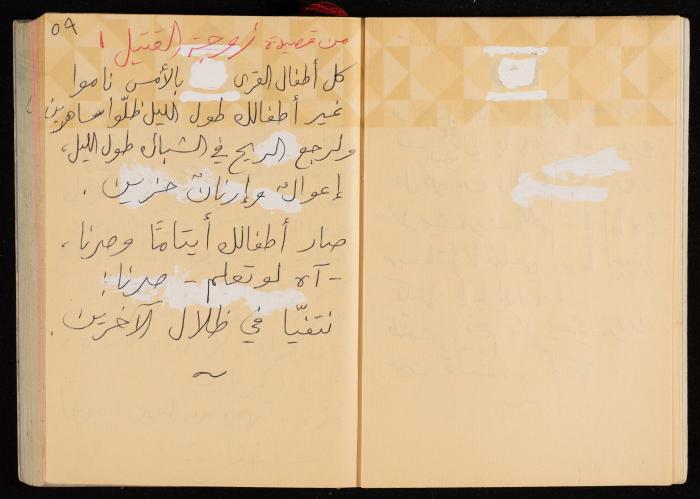 ٥٩
من قصيدة زوجة القتيل ١
كل أطفال القرى بالأمس ناموا
غير أطفالك طول الليل ظلّوا ساهرين
ولرجع الريح في الشباك طول الليل،
إعوال وإرنان حزين.
صار أطفالك أيتامًا وصرنا،
- آه لو تعلم - صرنا:
نتفيّا في ظلال الآخرين.
~